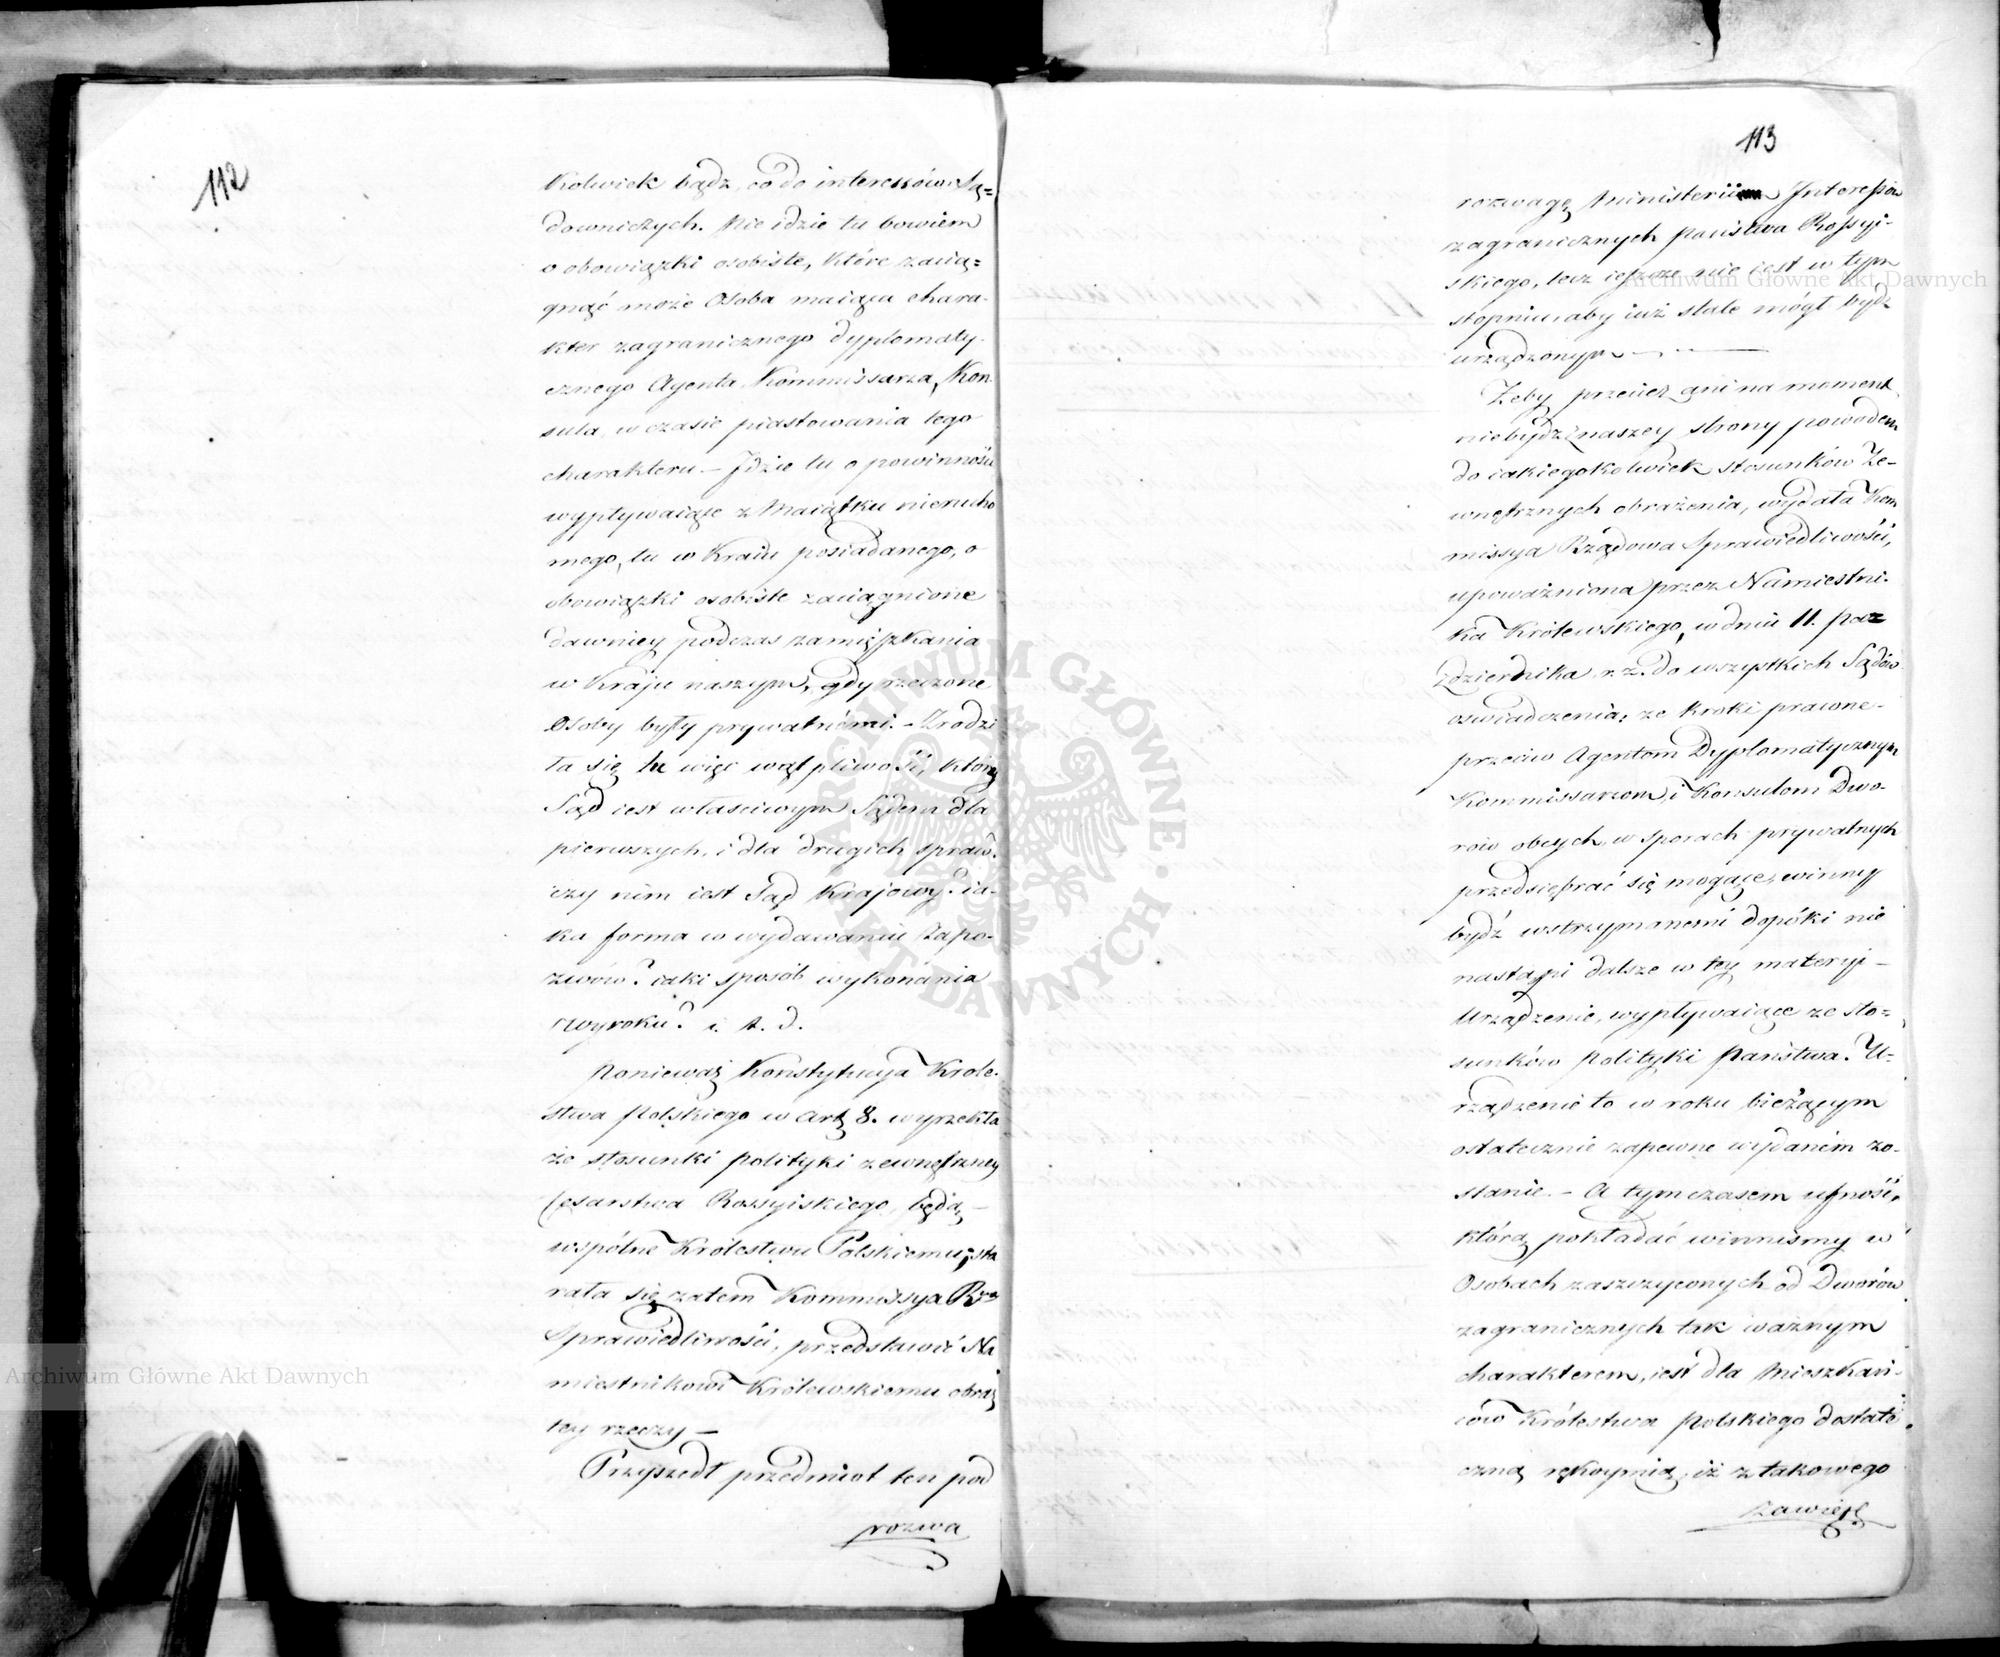 112
kolwiek bądź, co do interessów Są=
downiczych. Nie idzie tu bowiem
o obowiązki osobiste, które zacią=
gnąć może Osoba maiąca chara-
kter zagranicznego dyplomaty-
cznego Agenta, Kommissarza, Kon-
sula, w czasie piastowania tego
charakteru. – Idzie tu o powinności
wypływaiące z Maiątku nierucho
mego, tu w Kraiu posiadanego, o
obowiązki osobiste zaciągnione
dawniey podczas zamięszkania
w Kraju naszym, gdy rzeczone
Osoby były prywatnémi. – Zrodzi=
ła się tu więc wątpliwość, który
Sąd iest właściwym Sądem dla
pierwszych, i dla drugich spraw.
czy nim iest Sąd Krajowy? ia-
ka forma w wydawaniu Zapo-
zwów? iaki sposób wykonania
wyroku? i. t. d.
Ponieważ Konstytucya Króle-
stwa Polskiego w Art 8. wyrzekła
że stosunki polityki zewnętrzney
Cesarstwa Rossyiskiego, będą –
wspólne Królestwu Polskiemu; sta
rała się zatem Kommissya Rwa
Sprawiedliwości, przedstawić Na
miestnikowi Królewskiemu obraz
tey rzeczy –
Przyszedł przedmiot ten pod
rozwa
113
rozwagę Ministerium Interessów
zagranicznych państwa Rossyi-
skiego, lecz ieszcze nie iest w tym
stopniu, aby iuż stale mógł bydź
urządzonym –
Żeby przecież ani na moment
niebydź z naszey strony powodem
do iakiegokolwiek stosunków Ze-
wnętrznych obrażenia, wydała Kom
missya Rządowa Sprawiedliwości,
upoważniona przez Namiestni-
ka Królewskiego, w dniu 11. paz
dziernika r. z. do wszystkich Sądów
oświadczenia, że kroki prawne –
przeciw Agentom Dyplomatycznym
Kommissarzom, i Konsulom Dwo-
rów obcych, w sporach prywatnych
przedsiębrać się mogące, winny
bydź wstrzymanemi dopóki nie
nastąpi dalsze w tey materyi –
Urządzenie, wypływaiące ze sto=
sunków polityki Państwa. U-
rządzenie to w roku bieżącym
ostatecznie zapewne wydaném zo-
stanie. – A tymczasem ufność,
którą pokładać winnismy w
Osobach zaszczyconych od Dworów
zagranicznych tak ważnym
charakterem, iest dla Mieszkań-
ców Królestwa Polskiego dostate
czną rękoymią, iż z takowego
zawiesz
Archiwum Główne Akt Dawnych
Archiwum Główne Akt Dawnych
ARCHIWUM GŁÓWNE AKT DAWNYCH